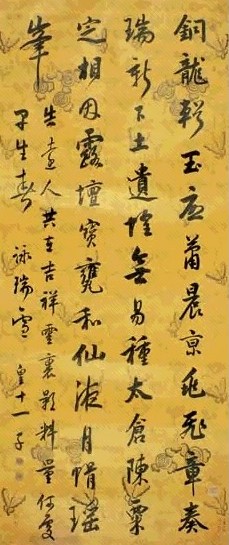 銅龍玉應蕭晨京兆飛章奏
瑞新下土遺蝗無易種太倉陳粟
定相因露壇寶甕和仙液月幌瑤
人共在吉祥雲裏影料量何處
早生春 詠瑞雪 皇十一子